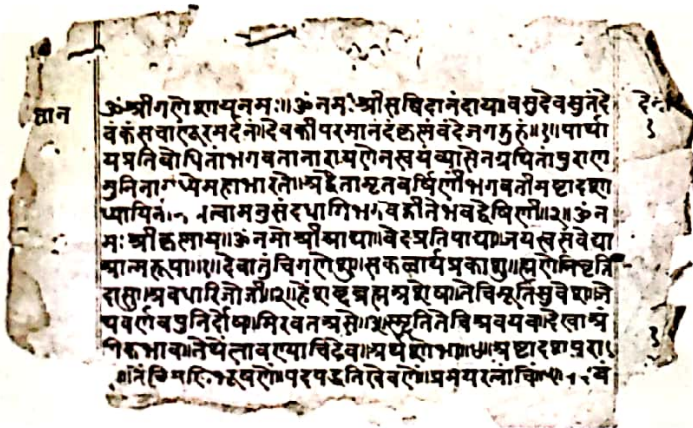 ज्ञान
ॐ श्रीगणेशायनमः॥ॐनमः श्रीसच्चिदानंदाय॥वसुदेवसुतंदे
वंकंसचाणूरमर्दनं॥देवकीपरमानंदंकृष्णंवंदेजगद्गुरुं॥१॥पार्था
यप्रतिबोधितांभगवतानारायणेनस्वयंव्यासेनग्रथितांपुराण
मुनिनामध्येमहाभारते॥अद्वैतामृतवर्षिणींभगवतीमष्टादशा
ध्यायिनीं त्वामनुसंदधामिभगवद्गीतेभवद्वेषिणीं॥२॥ॐन
मः श्रीकृष्णाय॥ॐनमोश्रीआद्या॥वेदप्रतिपाद्या॥जयस्वसंवेद्या
आत्मरूपा॥१॥देवातुंचिगणेशु॥सकळार्थप्रकाशु॥ह्मणेनिवृत्ति
दासु॥अवधारिजोजी॥२॥हेंशब्दब्रह्मअशेष॥तेचिमूर्तिसुवेश॥ते
थवर्णवपुनिर्दोष॥मिरवतअसे॥३॥स्मृतितेचिअवयव॥देखाअं
गिकभाव॥तेथेंलावण्याचिठेव॥अर्थशोभा॥४॥अष्टादशपुरा
णेंचिमणिभूषणें॥पदपद्धतिखेवणें॥प्रमेयरत्नाचिं
१